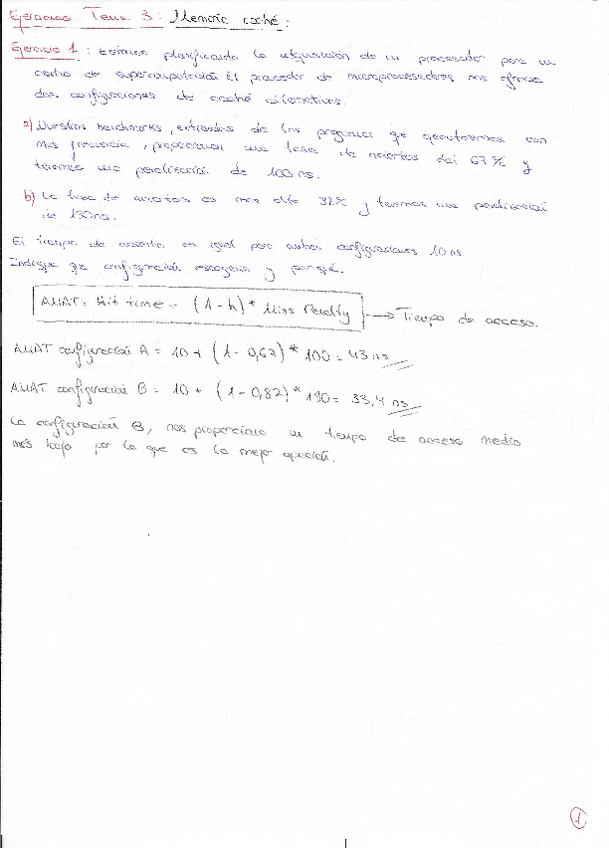 Ejercicios Tema 3: Memoria caché:
Ejercicio 1: Estamos planificando la adquisición de un procesador para un
centro de supercomputación. El proveedor de microprocesadores nos ofrece
dos configuraciones de caché alternativas.
a) Nuestros benchmarks, extraidos de los programas que ejecutaremos con
más frecuencia, proporcionan una tasa de aciertos del 67% y
tenemos una penalización de 100 ns.
b) La tasa de aciertos es más alta 82% y tenemos una penalización
de 130 ns.
El tiempo de acierto es igual para ambas configuraciones 10 ns
Indique que configuración escogería y porqué.
AMAT = Hit time + (1 - h) * Miss Penalty → Tiempo de acceso.
AMAT configuración A = 10 + (1 - 0,67) * 100 = 43 ns
AMAT configuración B = 10 + (1 - 0,82) * 130 = 33,4 ns
La configuración B, nos proporciona un tiempo de acceso medio
más bajo por lo que es la mejor opción.
1